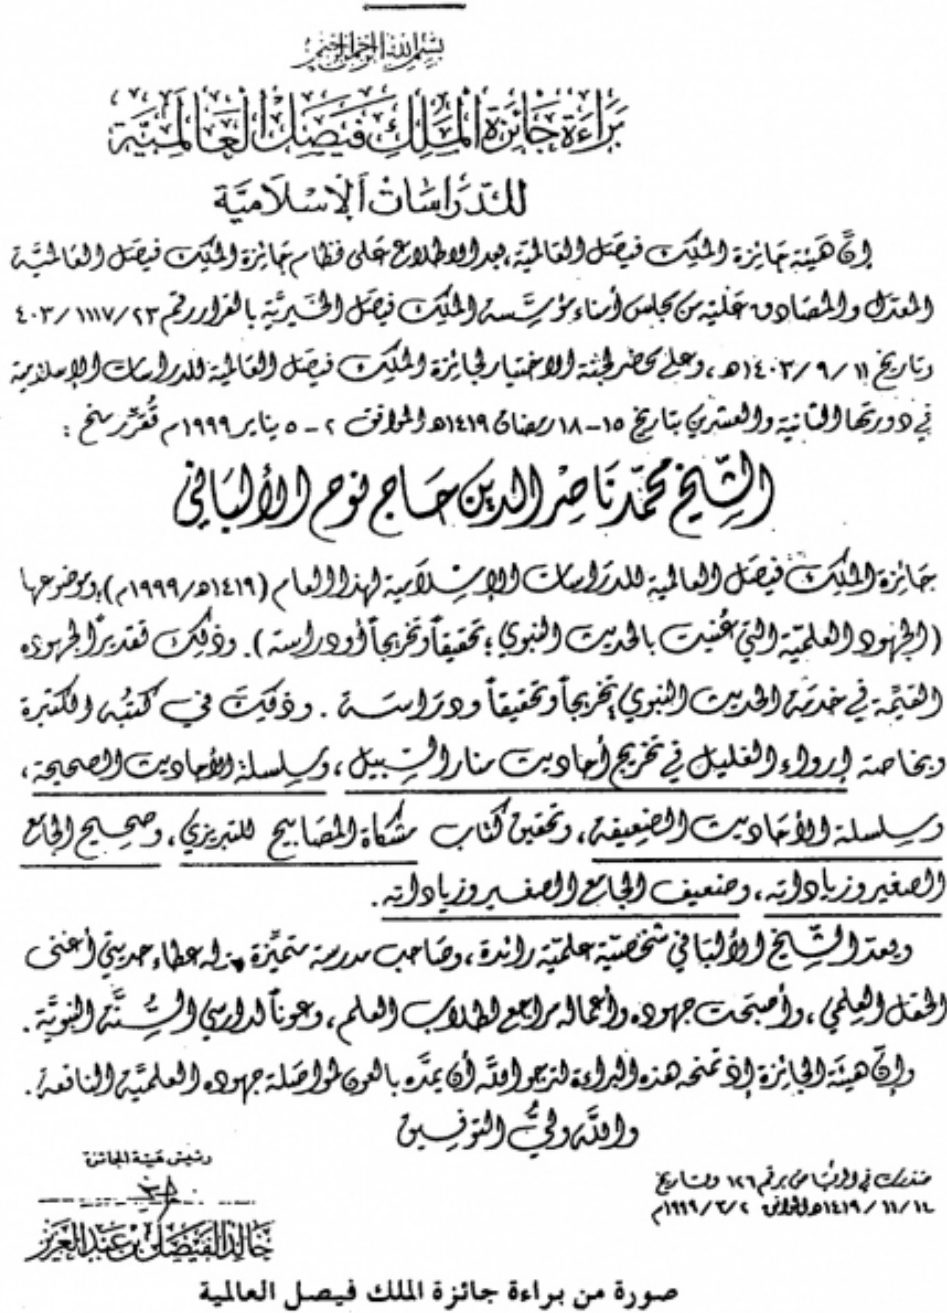 بسم الله الرحمن الرحيم
براءة جائزة الملك فيصل العالمية
للدراسات الإسلامية
إن هيئة جائزة الملك فيصل العالمية، بعد الاطلاع على نظام جائزة الملك فيصل العالمية
المعدل والمصادق عليه من مجلس أمناء مؤسسة الملك فيصل الخيرية بالقرار رقم ٤٠٣/١١١٧/٢٣
وتاريخ ١٤٠٣/٩/١١هـ، وعلى محضر لجنة الاختيار لجائزة الملك فيصل العالمية للدراسات الإسلامية
في دورتها الثانية والعشرين بتاريخ ١٥–١٨ رمضان ١٤١٩هـ الموافق ٢–٥ يناير ١٩٩٩م تقرر منح :
الشيخ محمد ناصر الدين حاج نوح الألباني
جائزة الملك فيصل العالمية للدراسات الإسلامية لهذا العام (١٤١٩هـ/١٩٩٩م)، وموضوعها
(الجهود العلمية التي عُنيت بالحديث النبوي؛ تحقيقاً وتخريجاً أو دراسة). وذلك تقديراً لجهوده
القيّمة في خدمة الحديث النبوي تخريجاً وتحقيقاً ودراسة. وذلك في كتبه الكثيرة
وبخاصة إرواء الغليل في تخريج أحاديث منار السبيل، وسلسلة الأحاديث الصحيحة،
وسلسلة الأحاديث الضعيفة، وتحقيق كتاب مشكاة المصابيح للتبريزي، وصحيح الجامع
الصغير وزياداته، وضعيف الجامع الصغير وزياداته.
ويعد الشيخ الألباني شخصيّة علميّة رائدة، وصاحب مدرسة متميّزة له عطاء حديثي أغنى
الحقل العلمي، وأصبحت جهوده وأعماله مراجع لطلاب العلم، وعوناً لدارسي السُّنّة النبويّة.
وإن هيئة الجائزة إذ تمنحه هذه البراءة لترجو الله أن يمدّه بالعون لمواصلة جهوده العلميّة النافعة.
والله وليّ التوفيق
رئيس هيئة الجائزة
خالد الفيصل بن عبد العزيز
في الرياض برقم ١٢٦ وتاريخ
١٤١٩/١١/١٤هـ الموافق ١٩٩٩/٣/٢م
صورة من براءة جائزة الملك فيصل العالمية